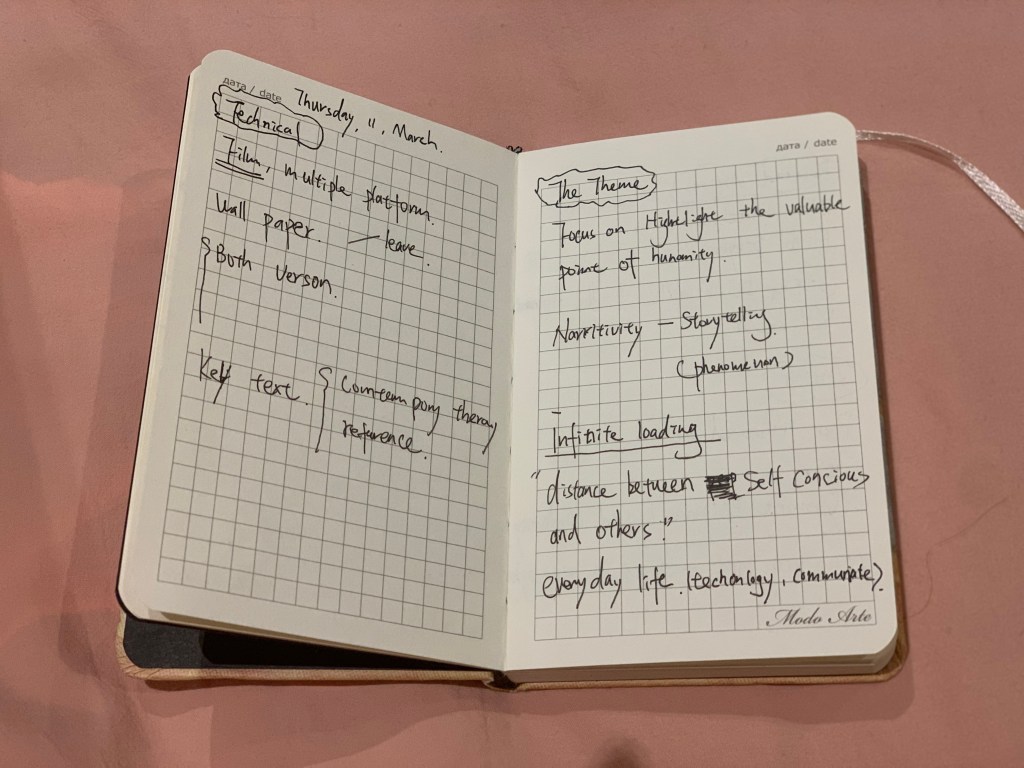 дата / date Thursday, 11, March.
Technical
Film, multiple platform.
Wall paper. — leave.
Both Verson.
Key text. { Comtempory theray
reference.
дата / date
The Theme
Focus on Highelight the valuable
point of humanity.
Narritivity — Storytelling.
(phenomenan)
Infinite loading
"distance between Self Concious
and others"
everyday life. (techonlogy, communiate).
Modo Arte